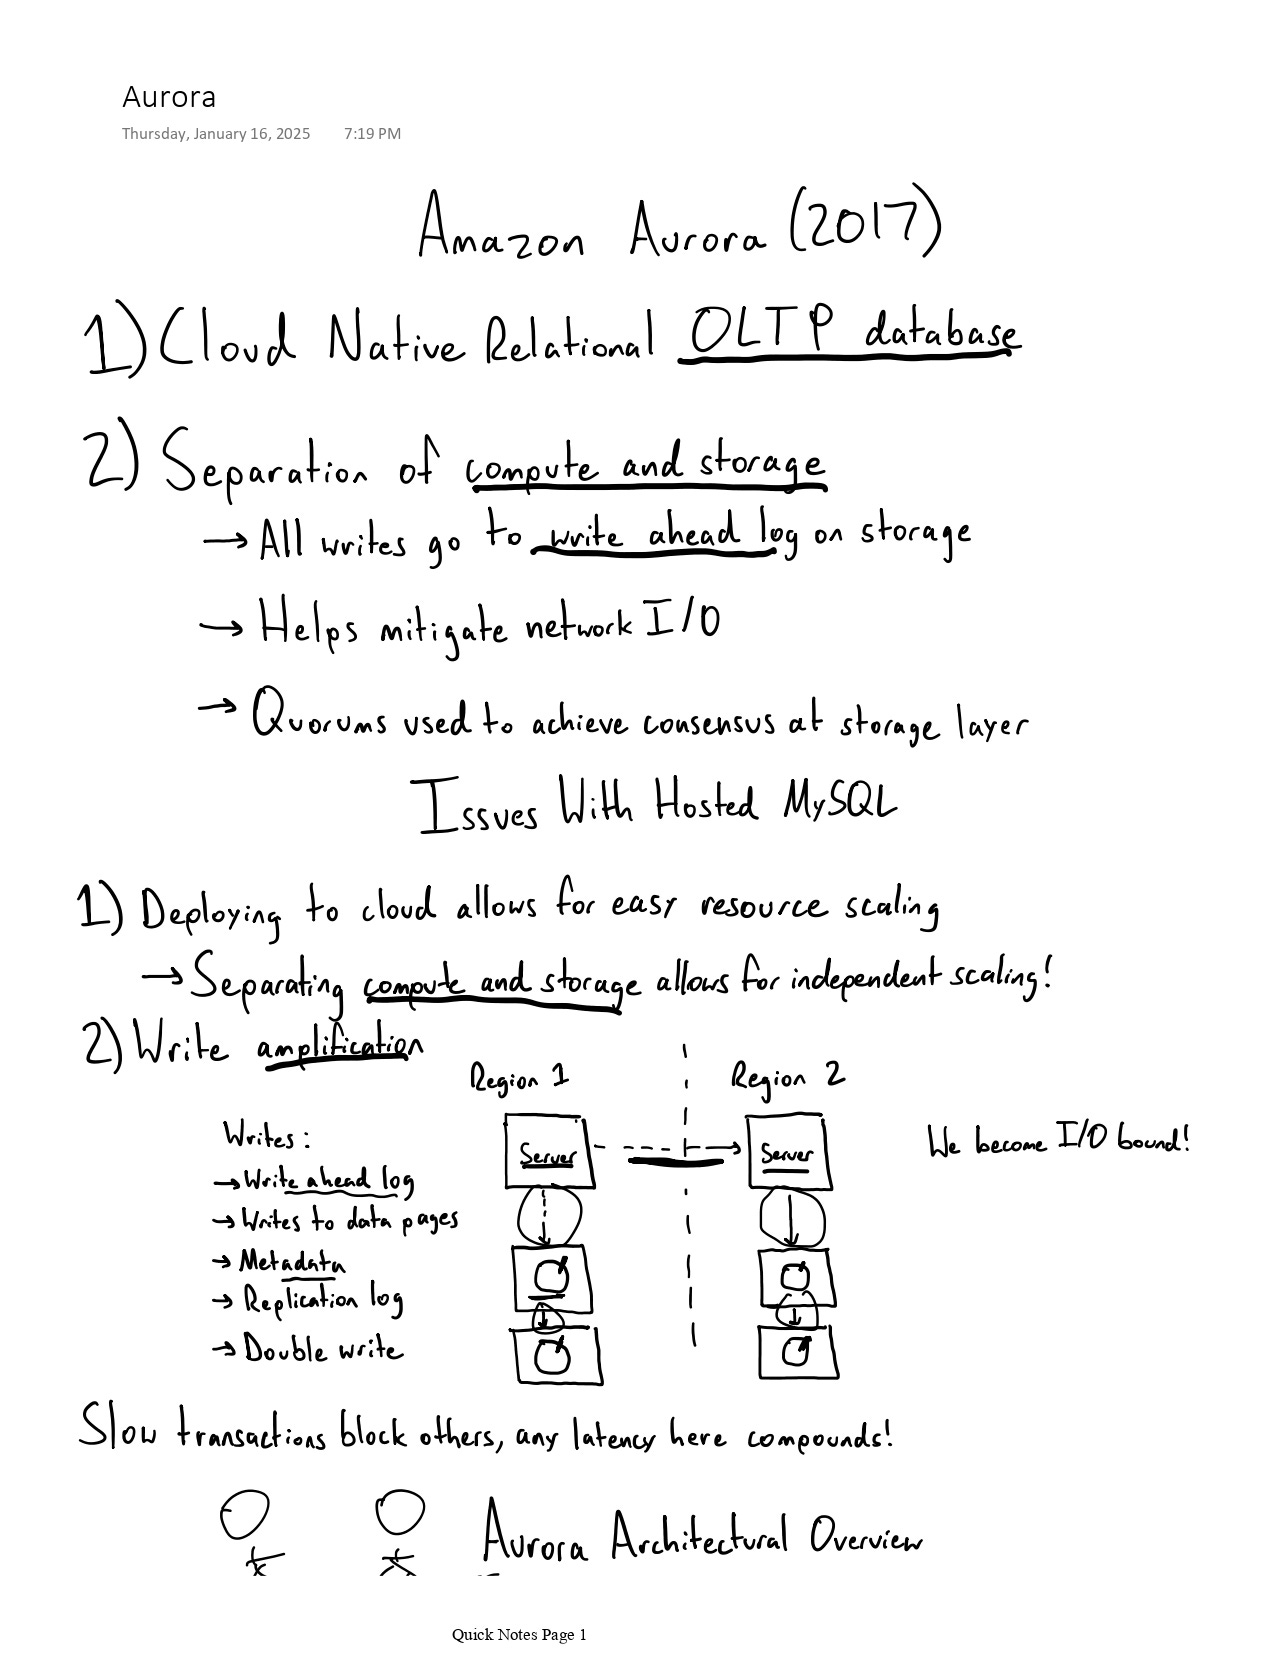 Aurora
Thursday, January 16, 2025 7:19 PM
Amazon Aurora (2017)
1) Cloud Native Relational OLTP database
2) Separation of compute and storage
→ All writes go to write ahead log on storage
→ Helps mitigate network I/O
→ Quorums used to achieve consensus at storage layer
Issues With Hosted MySQL
1) Deploying to cloud allows for easy resource scaling
→ Separating compute and storage allows for independent scaling!
2) Write amplification
Region 1 Region 2
Writes:
→ Write ahead log
→ Writes to data pages
→ Metadata
→ Replication log
→ Double write
Server Server
We become I/O bound!
Slow transactions block others, any latency here compounds!
Aurora Architectural Overview
Quick Notes Page 1